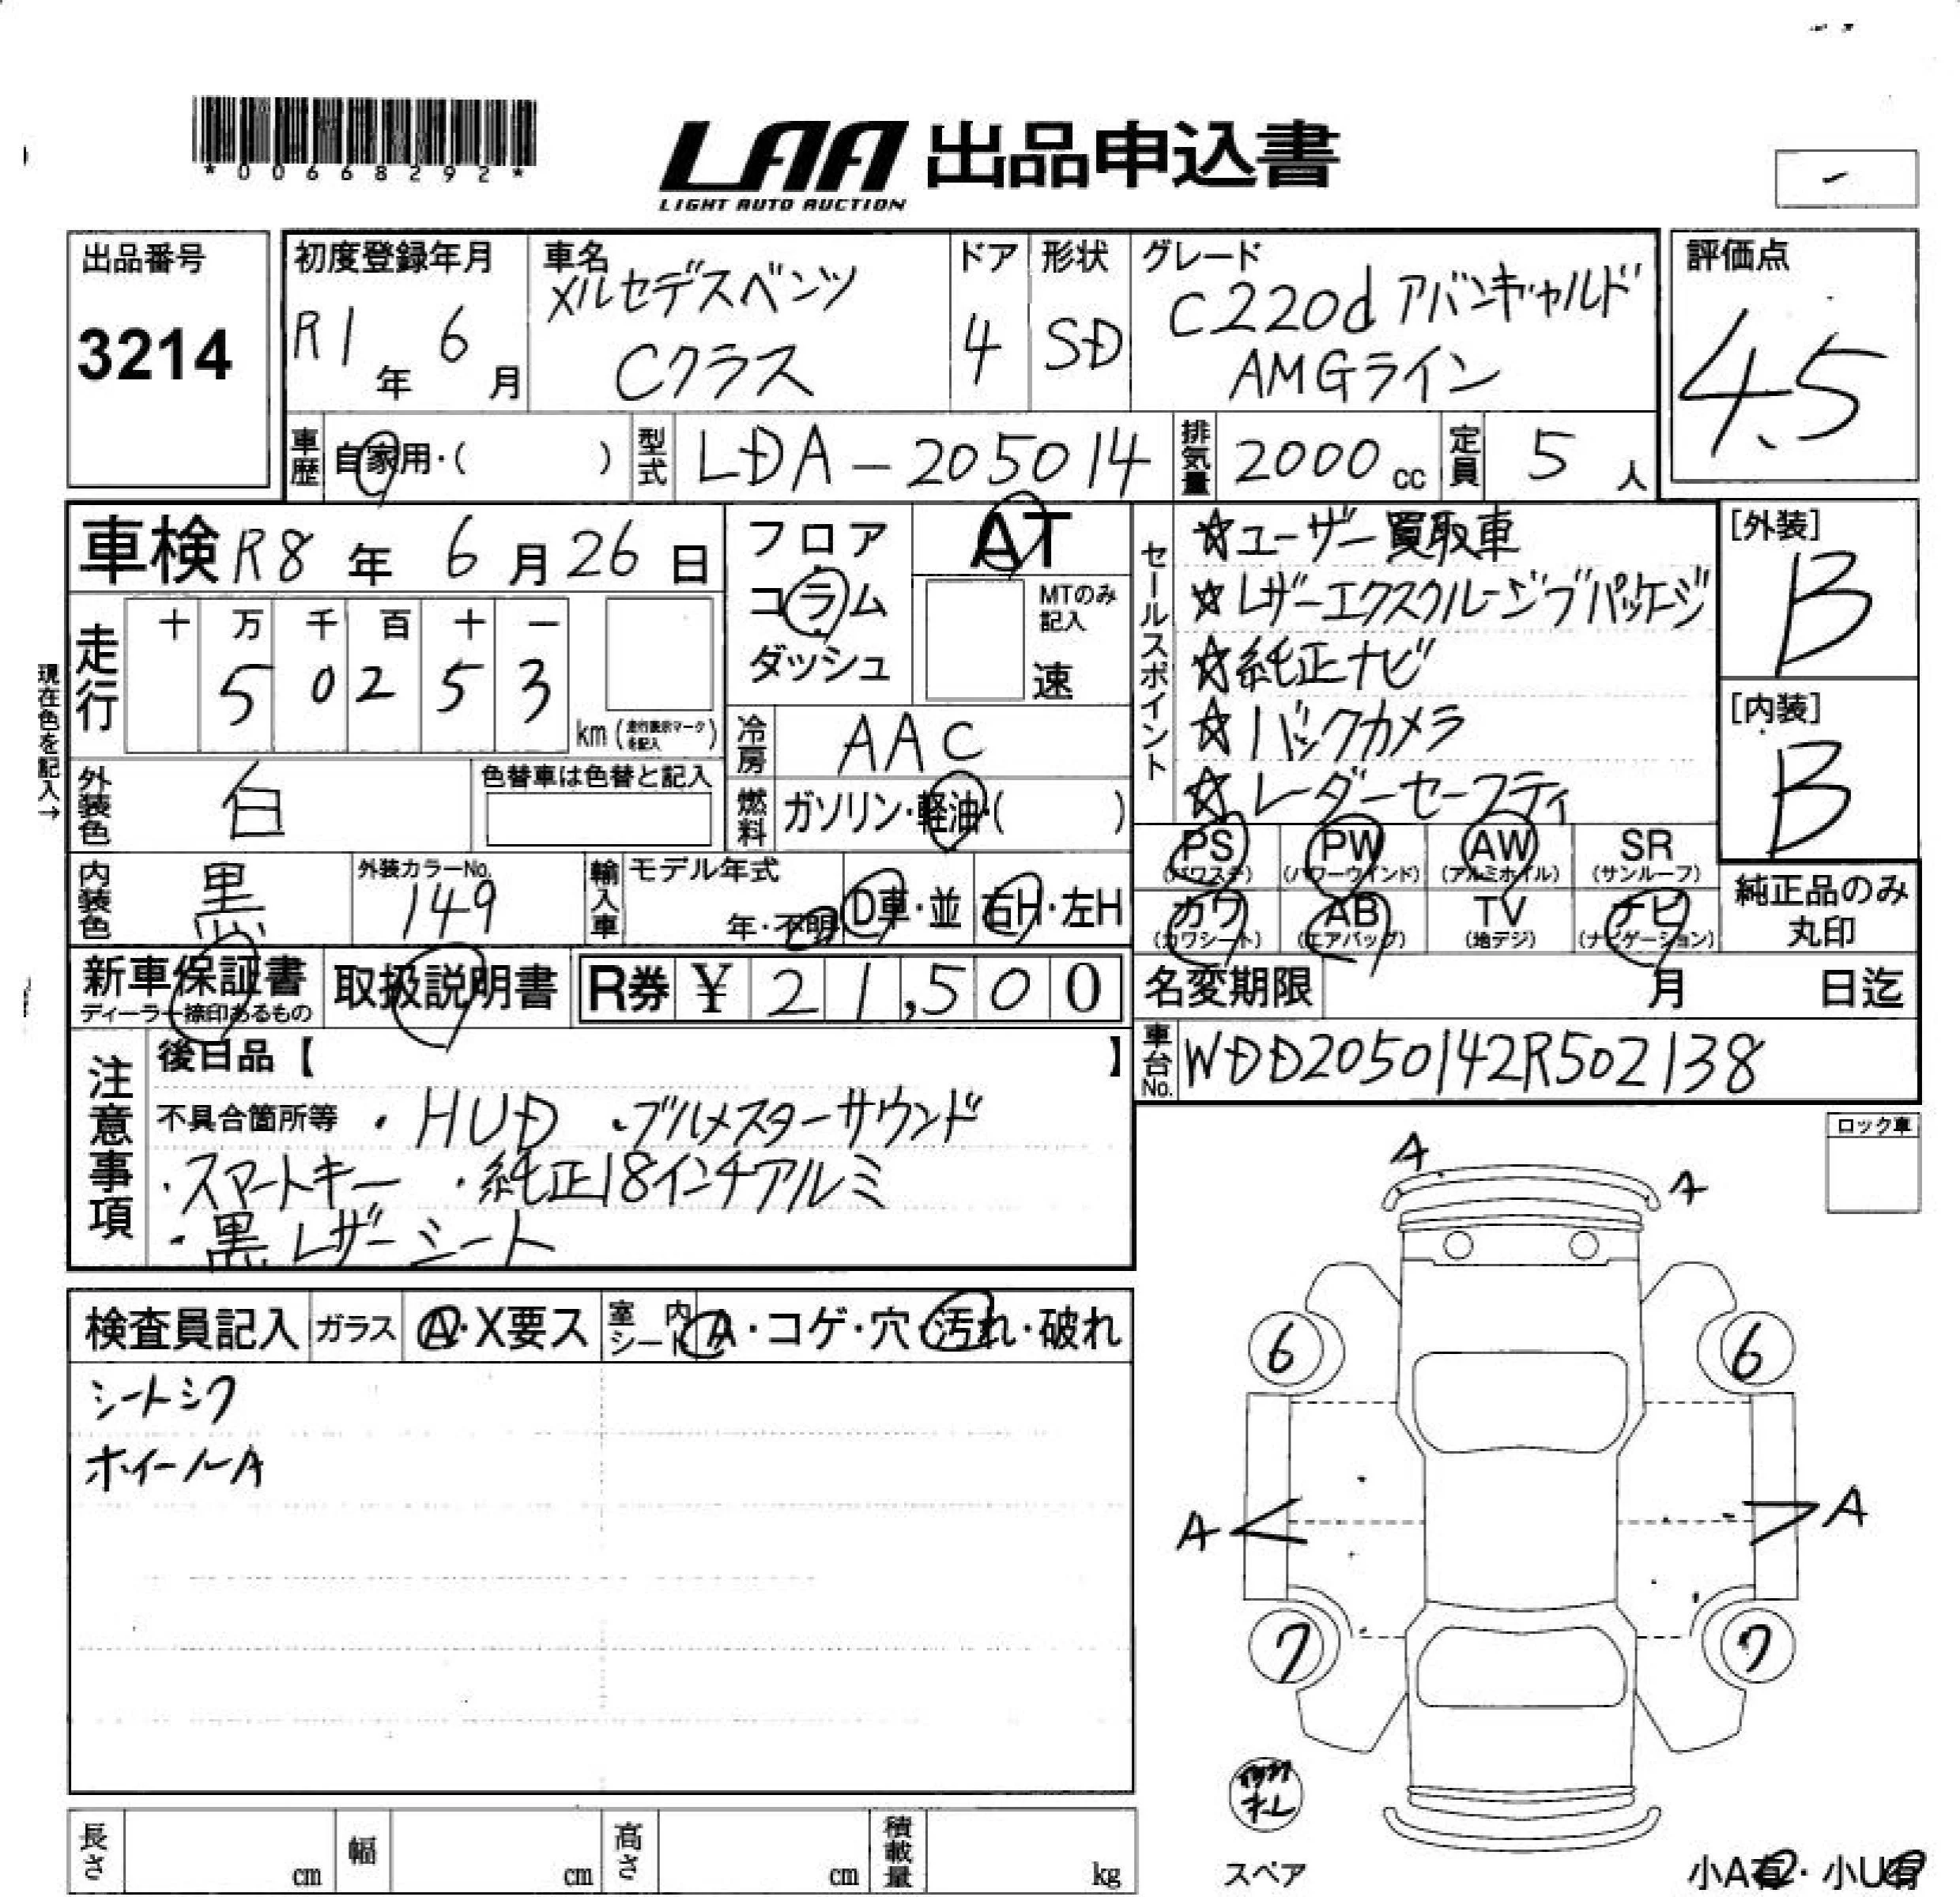 *00668292*
LAA 出品申込書
LIGHT AUTO AUCTION
-
出品番号
3214
初度登録年月
R1年 6月
車名
メルセデスベンツ
Cクラス
ドア
4
形状
SD
グレード
C220d アバンギャルド
AMGライン
評価点
4.5
車歴 自家用・( )
型式 LDA-205014
排気量 2000cc
定員 5人
車検 R8年 6月26日
フロア
コラム
ダッシュ
AT
MTのみ
記入
速
セールスポイント
☆ユーザー買取車
☆レザーエクスクルーシブパッケージ
☆純正ナビ
☆バックカメラ
☆レーダーセーフティ
[外装]
B
[内装]
B
現在色を記入→
走行
十 万 千 百 十 一
5 0 2 5 3
km (走行表示マークを記入)
冷房 AAC
燃料 ガソリン・軽油・( )
外装色 白
色替車は色替と記入
内装色 黒
外装カラーNo.
149
輸入車
モデル年式
年・不明
D車・並
右H・左H
PS
(パワステ)
PW
(パワーウインド)
AW
(アルミホイル)
SR
(サンルーフ)
カワ
(カワシート)
AB
(エアバッグ)
TV
(地デジ)
ナビ
(ナビゲーション)
純正品のみ
丸印
新車保証書
ディーラー捺印あるもの
取扱説明書
R券 ¥21,500
名変期限 月 日迄
車台No. WDD2050142R502138
注意事項
後日品【 】
不具合箇所等 ・HUD ・ブルメスターサウンド
・スマートキー ・純正18インチアルミ
・黒レザーシート
ロック車
検査員記入
ガラス A・X要ス
室内シート A・コゲ・穴・汚れ・破れ
シートシワ
ホイールA
A
A
6
6
A
A
7
7
スペア
小A有・小U有
長さ cm
幅 cm
高さ cm
積載量 kg